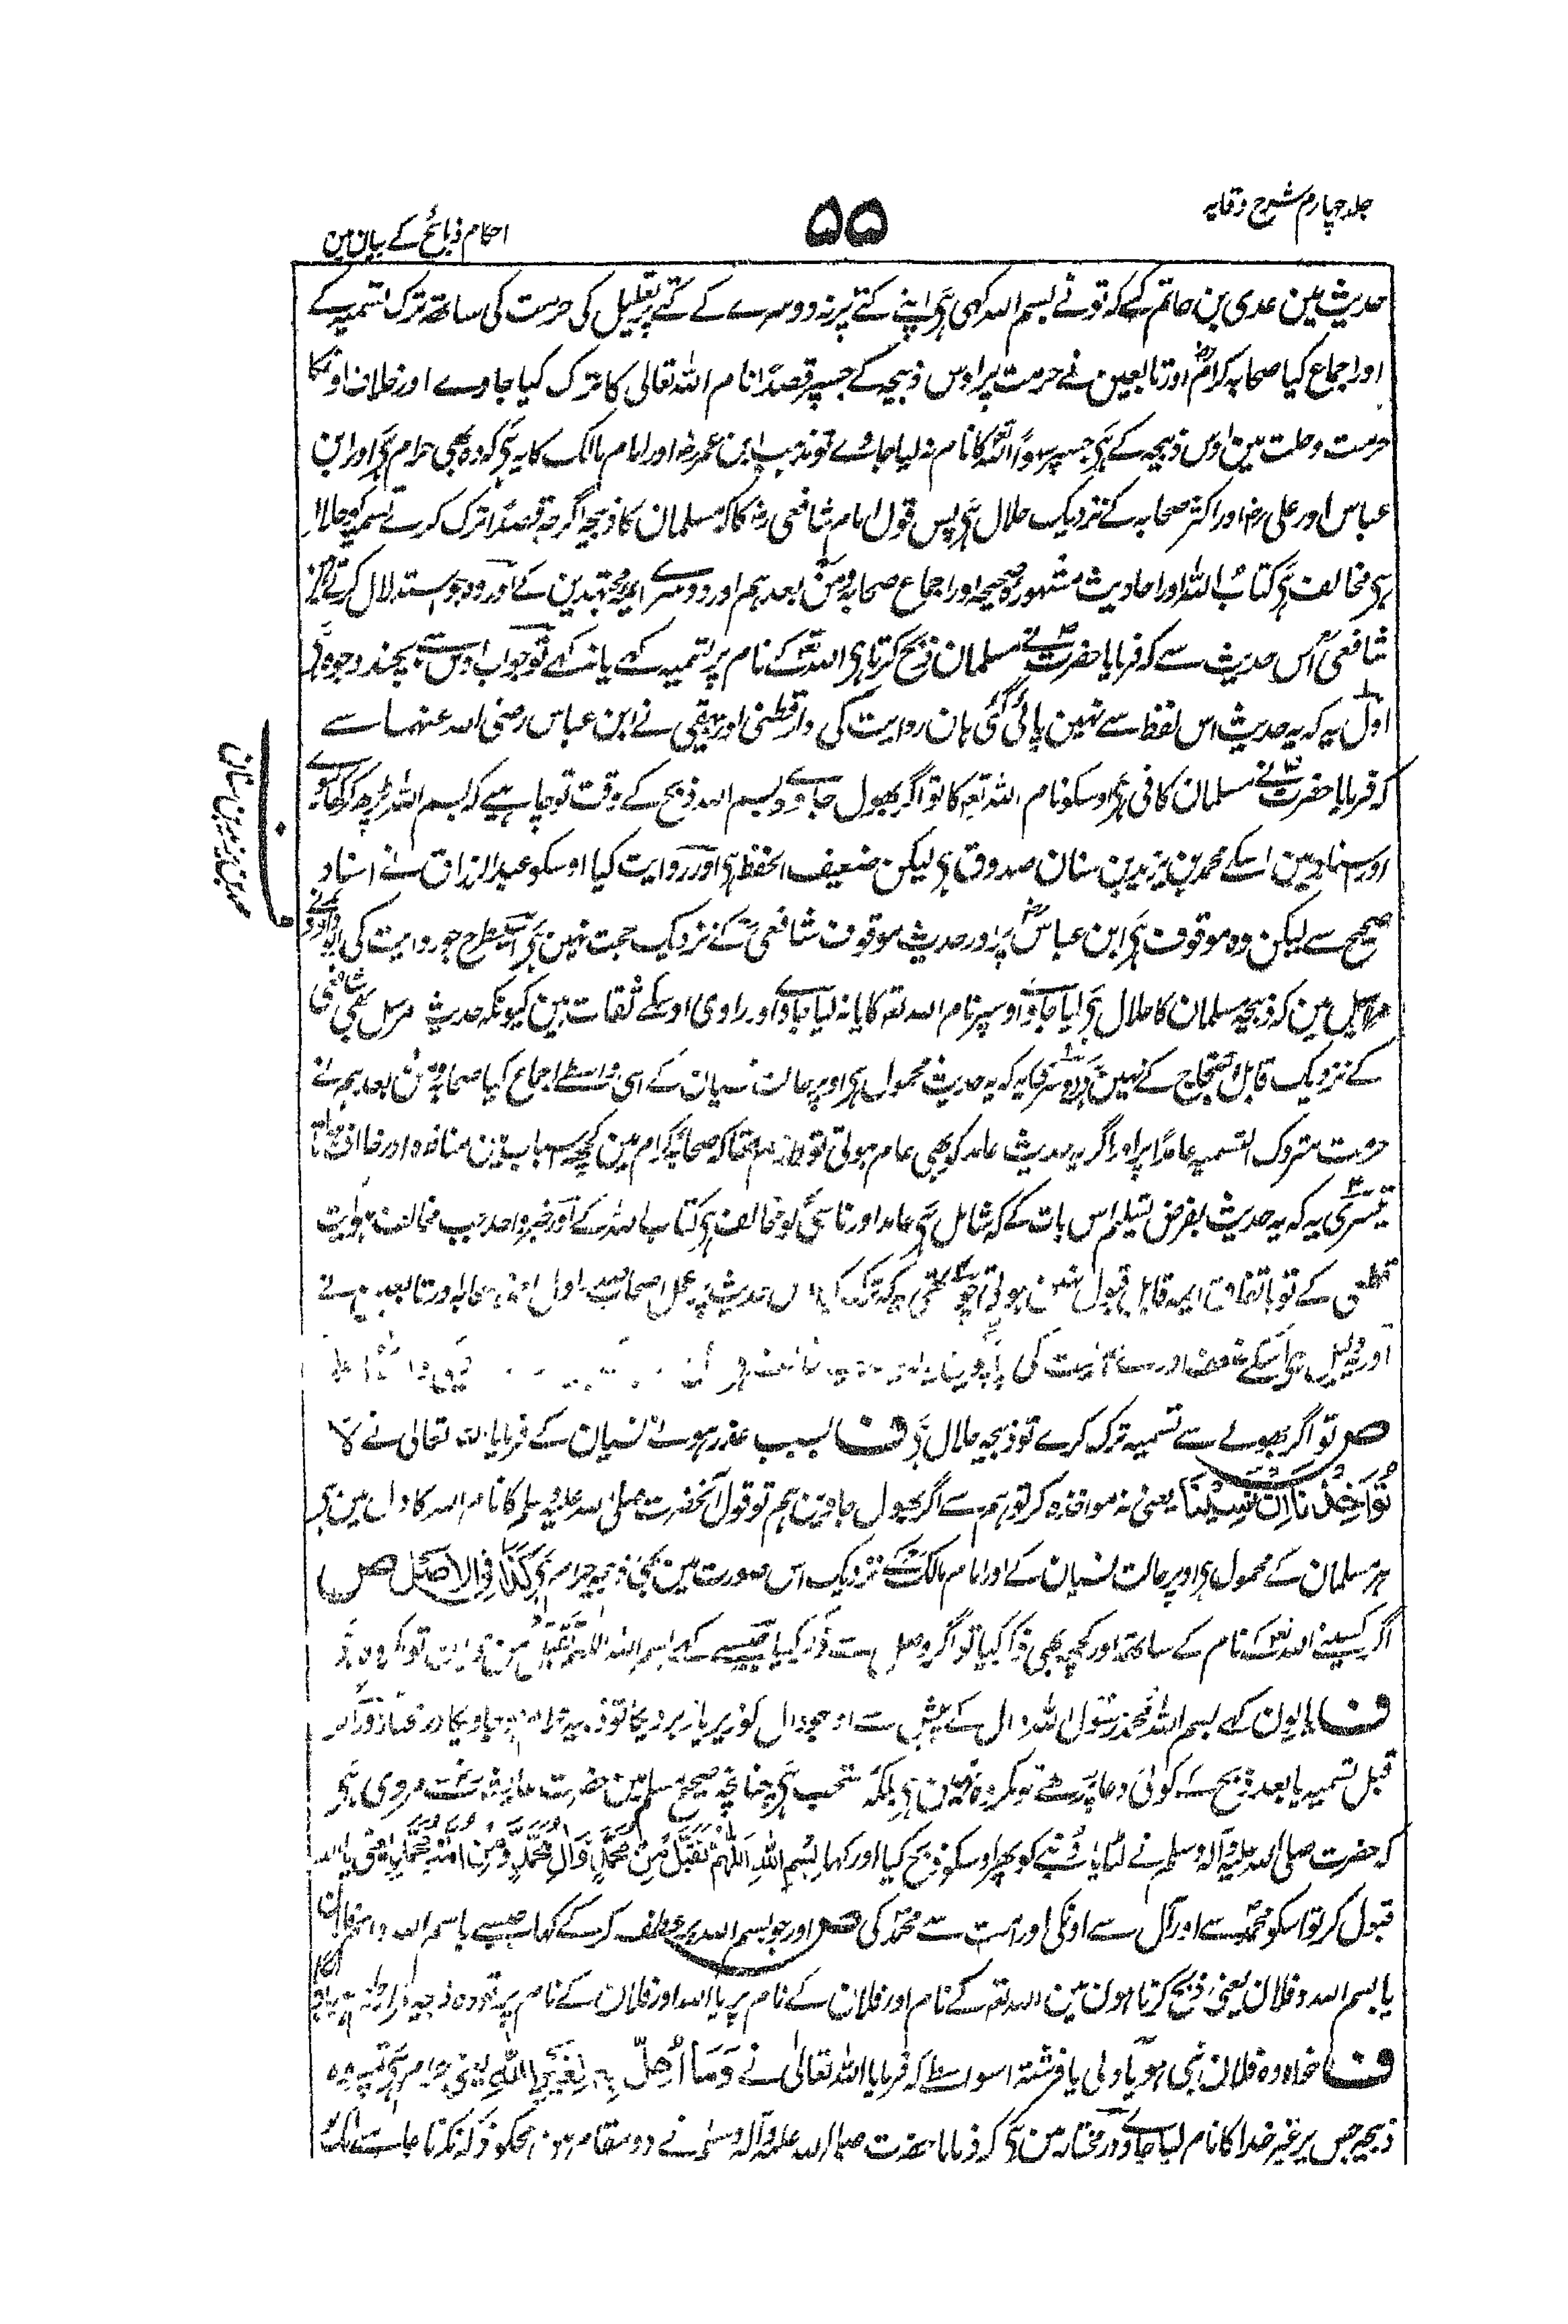 جلد چہارم شرح وقایہ
۵۵
احکام ذبائح کے بیان مین
حدیث مین عدی بن حاتم کے کہ تونے بسم اللہ کہی ہی اپنے کتے پر نہ دوسرے کے کتے پر تعلیل کی حرمت کی ساتھ ترک تسمیہ کے
اور اجماع کیا صحابہ کرام اور تابعین نے حرمت پر اوس ذبیحہ کے جسپر قصدًا نام اللہ تعالی کا ترک کیا جاوے اور خلاف اونکا
حرمت وحلت مین اوس ذبیحہ کے ہی جسپر سہوًا اللہ کا نام نہ لیا جاوے تو مذہب ابن عمر رض اور امام مالک کا یہ ہی کہ وہ بھی حرام ہی اور ابن
عباس اور علی رض اور اکثر صحابہ کے نزدیک حلال ہی پس قول امام شافعی رح کا کہ مسلمان کا ذبیحہ اگرچہ قصدًا ترک کرے تسمیہ کو حلال
ہی مخالف ہی کتاب اللہ اور احادیث مشہورہ صحیحہ اور اجماع صحابہ ومن بعدہم اور دوسرے ایمہ مجتہدین کے اور وہ جو استدلال کرتے ہین
شافعی اس حدیث سے کہ فرمایا حضرت نے مسلمان ذبح کرتا ہی اللہ کے نام پر تسمیہ کہے یا نہ کہے تو جواب اوس سے بچند وجوہ ہی
اول یہ کہ یہ حدیث اس لفظ سے نہین پائی گئی ہان روایت کی دارقطنی اور بیہقی نے ابن عباس رضی اللہ عنہما سے
کہ فرمایا حضرت نے مسلمان کافی ہی اوسکو نام اللہ تعہ کا تو اگر بھول جاوے بسم اللہ ذبح کے وقت تو چاہیے کہ بسم اللہ پڑھ کر کھاوے
اور اسناد مین اسکے محمد بن یزید بن سنان صدوق ہی لیکن ضعیف الحفظ ہی اور روایت کیا اوسکو عبد الرزاق نے اسناد
محمد بن یزید بن سنان
صحیح سے لیکن وہ موقوف ہی ابن عباس پر اور حدیث موقوف شافعی کے نزدیک حجت نہین ہی اسیطرح جو روایت کی ابو داود نے
مراسیل مین کہ ذبیحہ مسلمان کا حلال ہی لیا جاوے اوسپر نام اللہ تعہ کا یا نہ لیا جاوے اور راوی اوسکے ثقات ہین کیونکہ حدیث مرسل بھی شافعی
کے نزدیک قابل احتجاج کے نہین ہی دوسری یہ کہ یہ حدیث محمول ہی اوپر حالت نسیان کے اسی واسطے اجماع کیا صحابہ ومن بعدہم نے
حرمت متروک التسمیہ عامدًا پر اور اگر یہ حدیث عامد کو بھی عام ہوتی تو لازم تھا کہ صحابہ کرام مین کچھ اس باب مین منازعہ اور خلاف ہوتا
تیسری یہ کہ یہ حدیث بفرض تسلیم اس بات کے کہ شامل ہی عامد اور ناسی کو مخالف ہی کتاب اللہ کے اور خبر واحد جب مخالف ہو آیت
قطعی کے تو باتفاق ایمہ قابل قبول نہین ہوتی چوتھی یہ کہ ترک کیا اس حدیث پر عمل اصحاب صدر اول یعنی صحابہ اور تابعین نے
اور یہ دلیل ہی اسکے ضعف اور کی پانچوین یہ
ص تو اگر بھولے سے تسمیہ ترک کرے تو ذبیحہ حلال ہی ف بسبب عذر ہونے نسیان کے فرمایا اللہ تعالی نے لَا
تُؤَاخِذْنَا اِنْ نَسِیْنَا یعنی نہ مواخذہ کر تو ہم سے اگر بھول جاوین ہم تو قول آنحضرت صلی اللہ علیہ وسلم کا نام اللہ کا دل مین ہی
ہر مسلمان کے محمول ہی اوپر حالت نسیان کے اور امام مالک کے نزدیک اس صورت مین بھی ذبیحہ حرام ہی کَذَا فِی الْاَصْل ص
اگر کسینے اللہ کے نام کے ساتھ اور کچھ بھی ذکر کیا تو اگر وصل سے ذکر کیا جیسے کہے بسم اللہ اللہم تقبل من فلان تو مکروہ ہی
ف یا یون کہے بسم اللہ محمد رسول اللہ دال کے پیش سے اور جو دال کو زیر یا زبر دیگا تو ذبیحہ حرام ہو جاویگا در مختار اور اگر
قبل تسمیہ یا بعد ذبح کے کوئی دعا پڑھے تو مکروہ نہین ہی بلکہ مستحب ہی چنانچہ صحیح مسلم مین حضرت عایشہ سے مروی ہی
کہ حضرت صلی اللہ علیہ وآلہ وسلم نے لٹایا دنبے کو پھر اوسکو ذبح کیا اور کہا بِسْمِ اللّٰہِ اَللّٰهُمَّ تَقَبَّلْ مِنْ مُحَمَّدٍ وَّاٰلِ مُحَمَّدٍ وَّمِنْ اُمَّةِ مُحَمَّدٍ یعنی یا اللہ
قبول کر تو اسکو محمد سے اور آل سے اونکی اور امت سے محمد کی ص اور جو بسم اللہ پر عطف کرکے کہا جیسے باسم اللہ واسم فلان
یا بسم اللہ وفلان یعنی ذبح کرتا ہون مین اللہ تعہ کے نام اور فلان کے نام پر یا اللہ اور فلان کے نام پر تو وہ ذبیحہ حرام ہو جاویگا
ف خواہ وہ فلان نبی ہو یا ولی یا فرشتہ اسواسطے کہ فرمایا اللہ تعالیٰ نے وَمَا اُهِلَّ بِهٖ لِغَیْرِ اللّٰهِ یعنی حرام ہی تمپر وہ
ذبیحہ جس پر غیر خدا کا نام لیا جاوے در مختار مین ہی کہ فرمایا حضرت صلی اللہ علیہ وآلہ وسلم نے دو مقام مین مجکو ذکر نکرنا چاہیے ایک تو